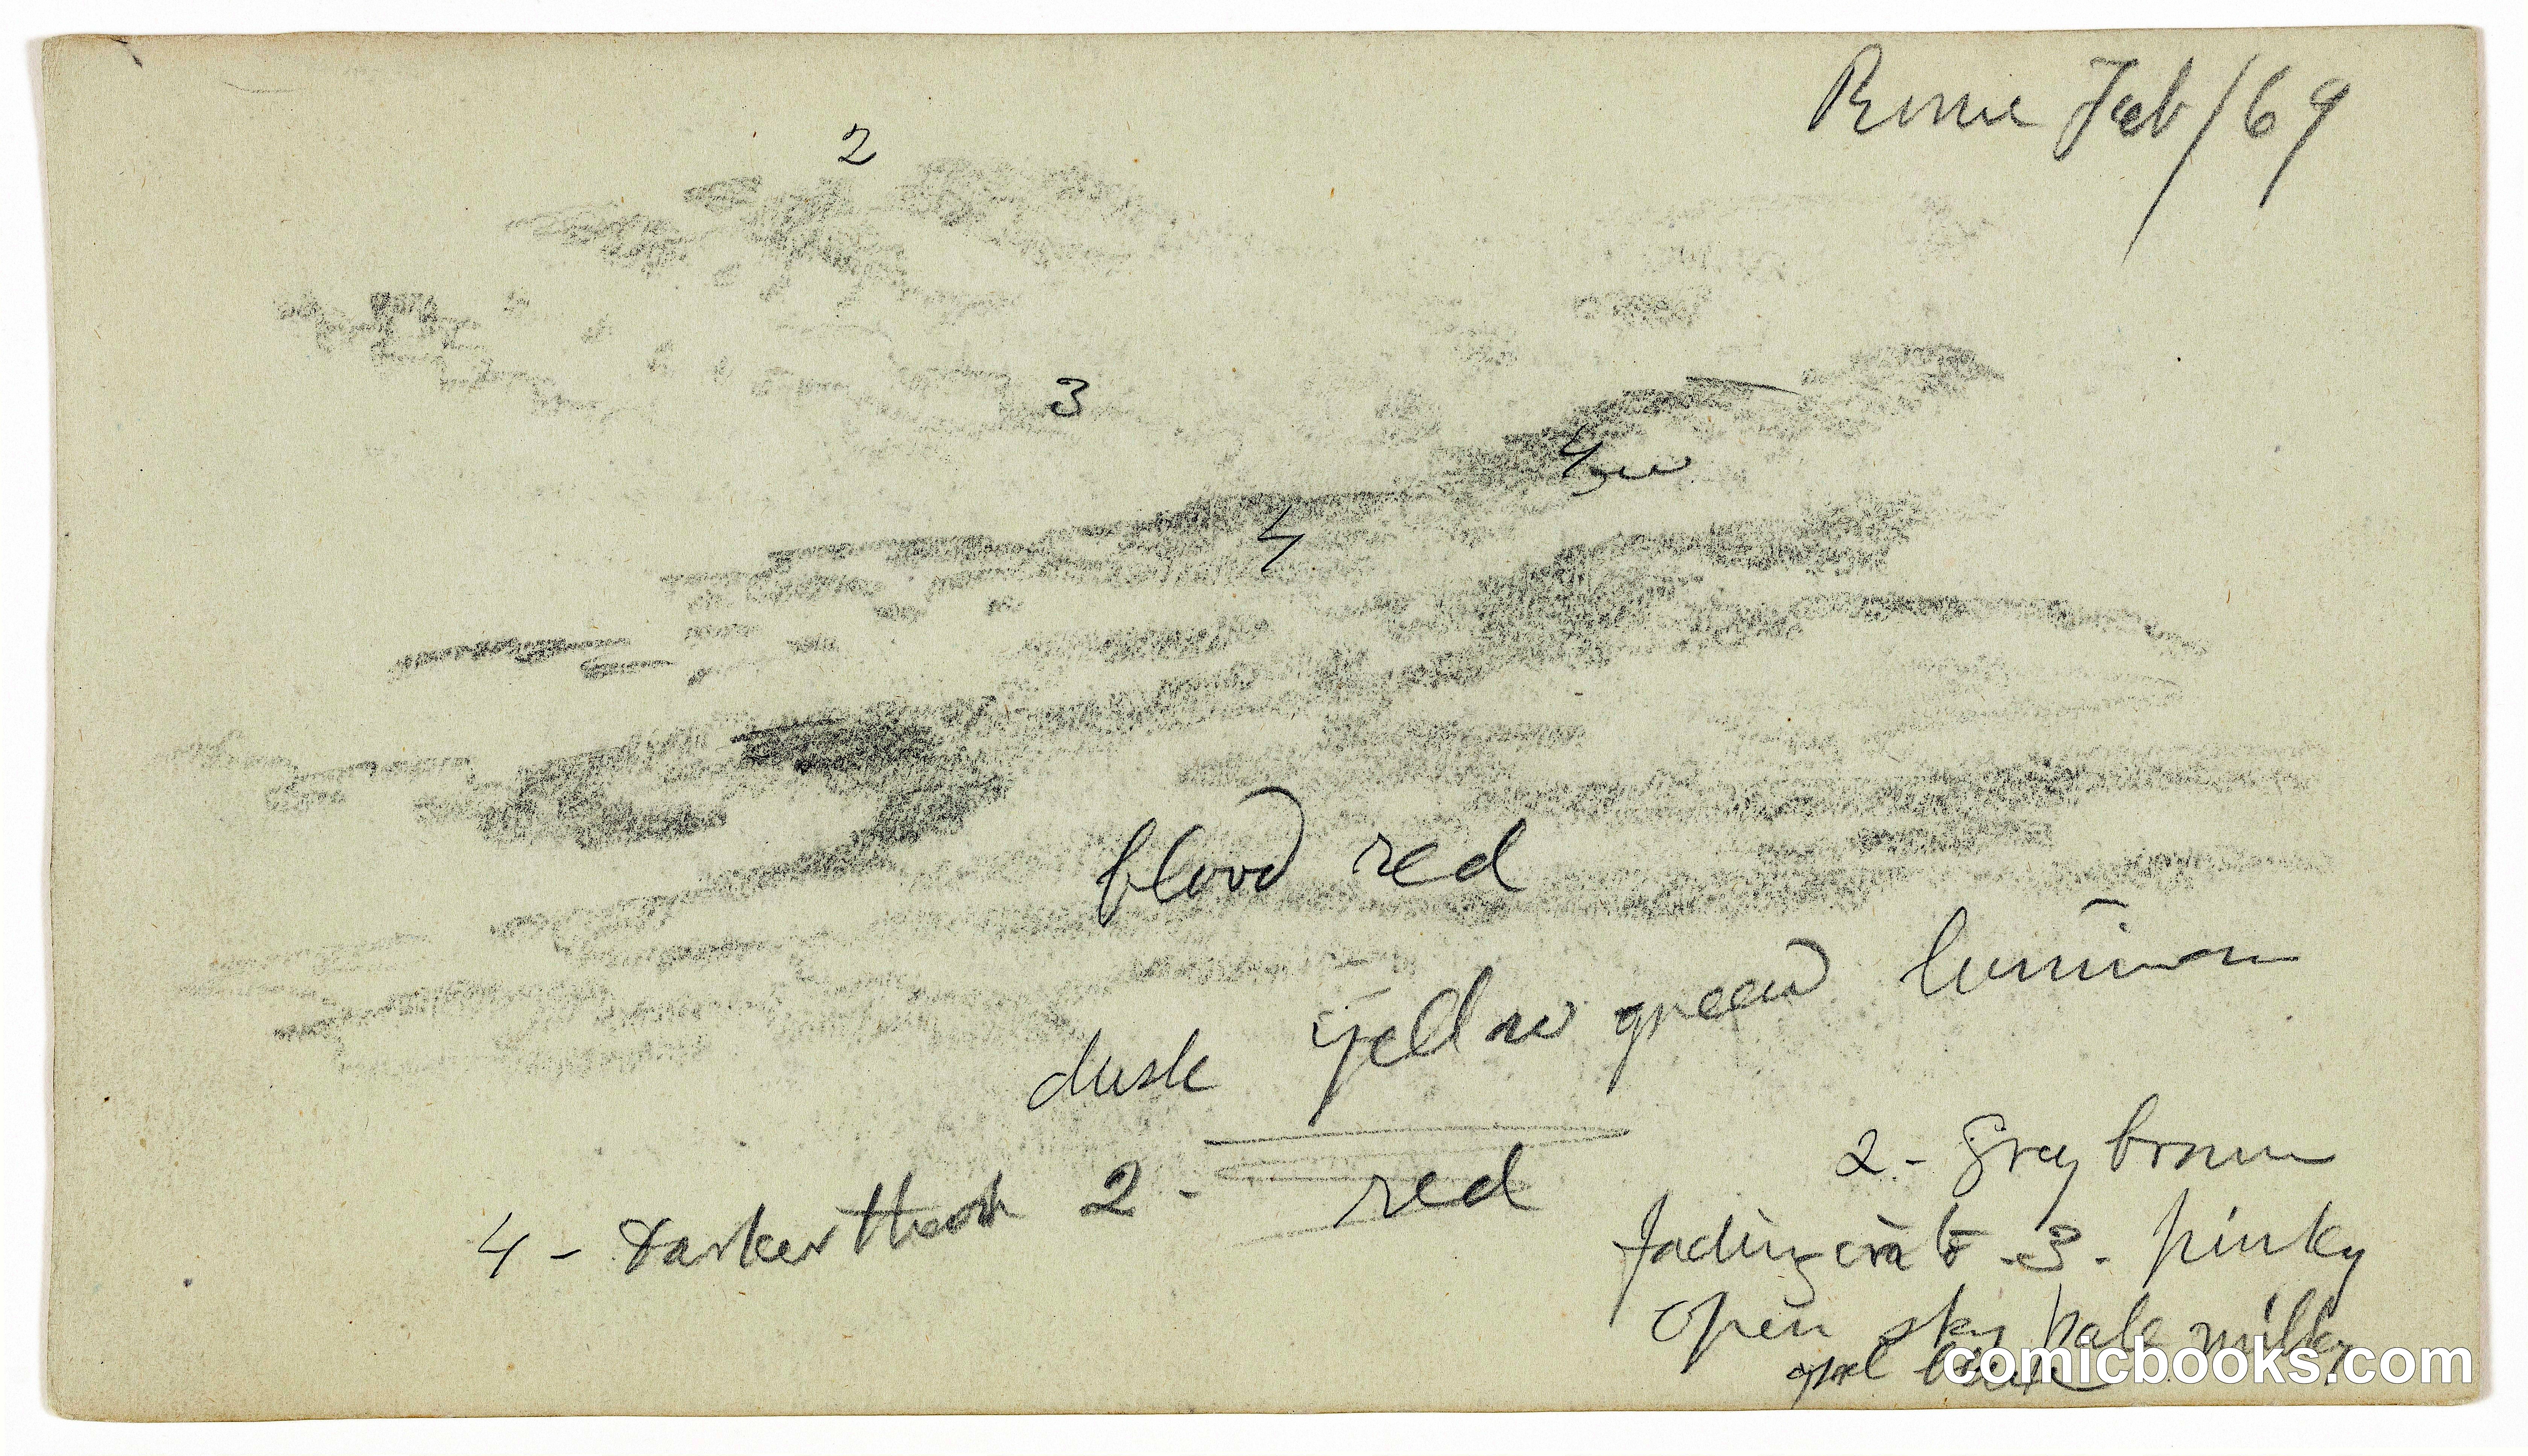 Rome Feb/69
2
3
4
4
blood red
yellow green
dusk
red
4 - Darker than 2 -
2 - Grey brown
fading into - 3 - pinky
open sky pale milky
comicbooks.com